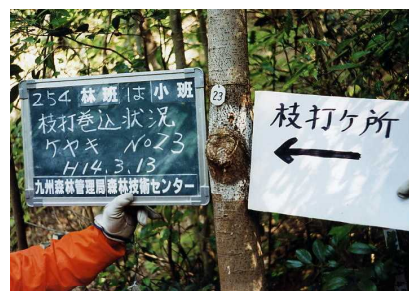 254 林班 は 小班
枝打巻込状況
ケヤキ No23
H14.3.13
九州森林管理局森林技術センター
23
枝打ケ所
←